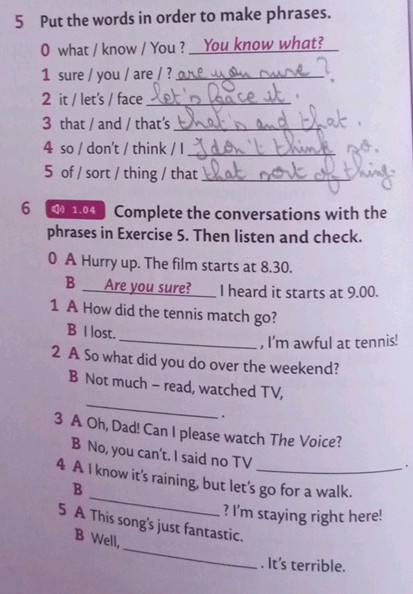 5 Put the words in order to make phrases.
0 what / know / You ? You know what?
1 sure / you / are / ? are you sure ?
2 it / let's / face let's face it.
3 that / and / that's that's and that.
4 so / don't / think / I I don't think so.
5 of / sort / thing / that that sort of thing.
6 1.04 Complete the conversations with the
phrases in Exercise 5. Then listen and check.
0 A Hurry up. The film starts at 8.30.
B Are you sure? I heard it starts at 9.00.
1 A How did the tennis match go?
B I lost. , I'm awful at tennis!
2 A So what did you do over the weekend?
B Not much – read, watched TV,
.
3 A Oh, Dad! Can I please watch The Voice?
B No, you can't. I said no TV .
4 A I know it's raining, but let's go for a walk.
B ? I'm staying right here!
5 A This song's just fantastic.
B Well, . It's terrible.